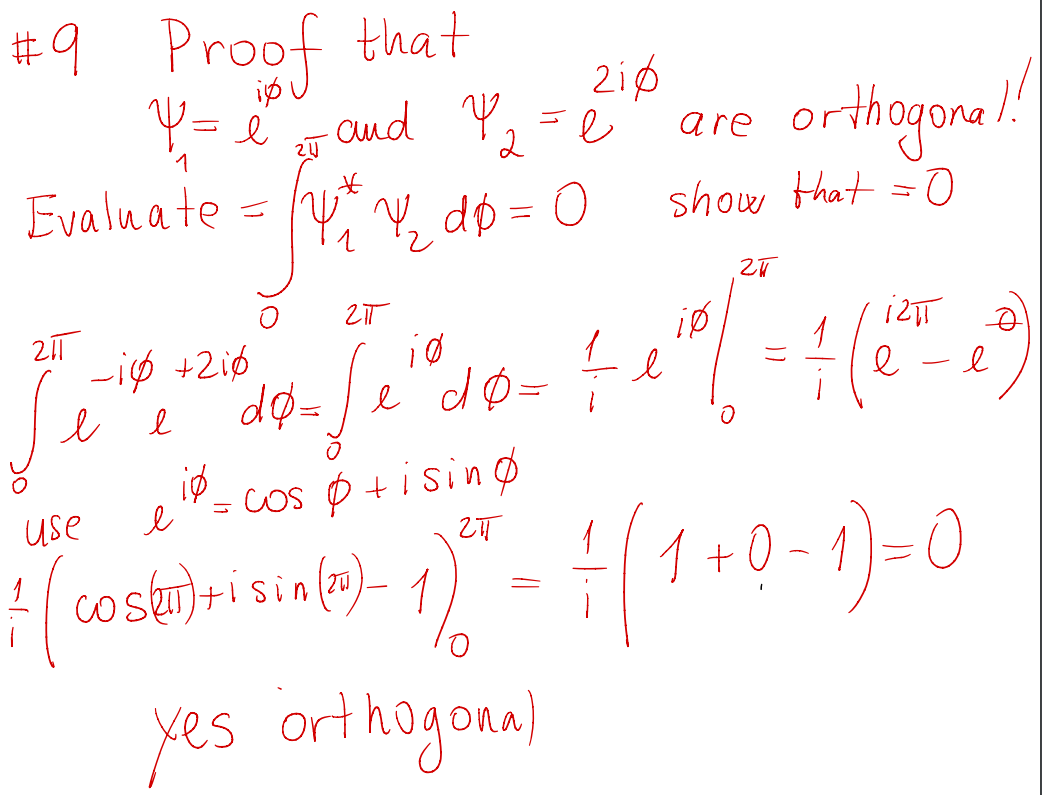 #9 Proof that
Ψ₁ = e^{iφ} and Ψ₂ = e^{2iφ} are orthogonal!
Evaluate = ∫₀^{2π} Ψ₁* Ψ₂ dφ = 0 show that = 0
∫₀^{2π} e^{-iφ} e^{+2iφ} dφ = ∫₀^{2π} e^{iφ} dφ = 1/i e^{iφ} |₀^{2π} = 1/i (e^{i2π} - e^{0})
use e^{iφ} = cos φ + i sin φ
1/i (cos(2π) + i sin(2π) - 1)₀^{2π} = 1/i (1 + 0 - 1) = 0
yes orthogonal